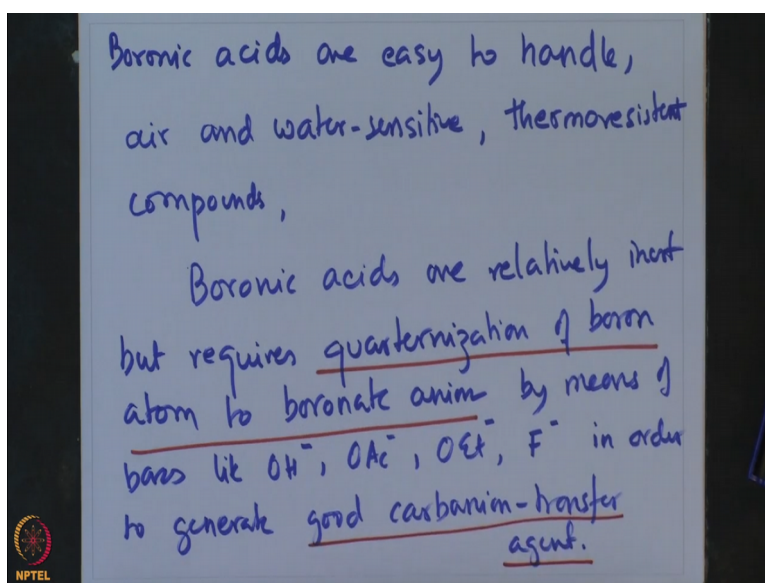 Boronic acids are easy to handle,
air and water-sensitive, thermoresistent
compounds,
Boronic acids are relatively inert
but requires quarternization of boron
atom to boronate anion by means of
bases like OH⁻, OAc⁻, OEt⁻, F⁻ in order
to generate good carbanion-transfer
agent.
NPTEL